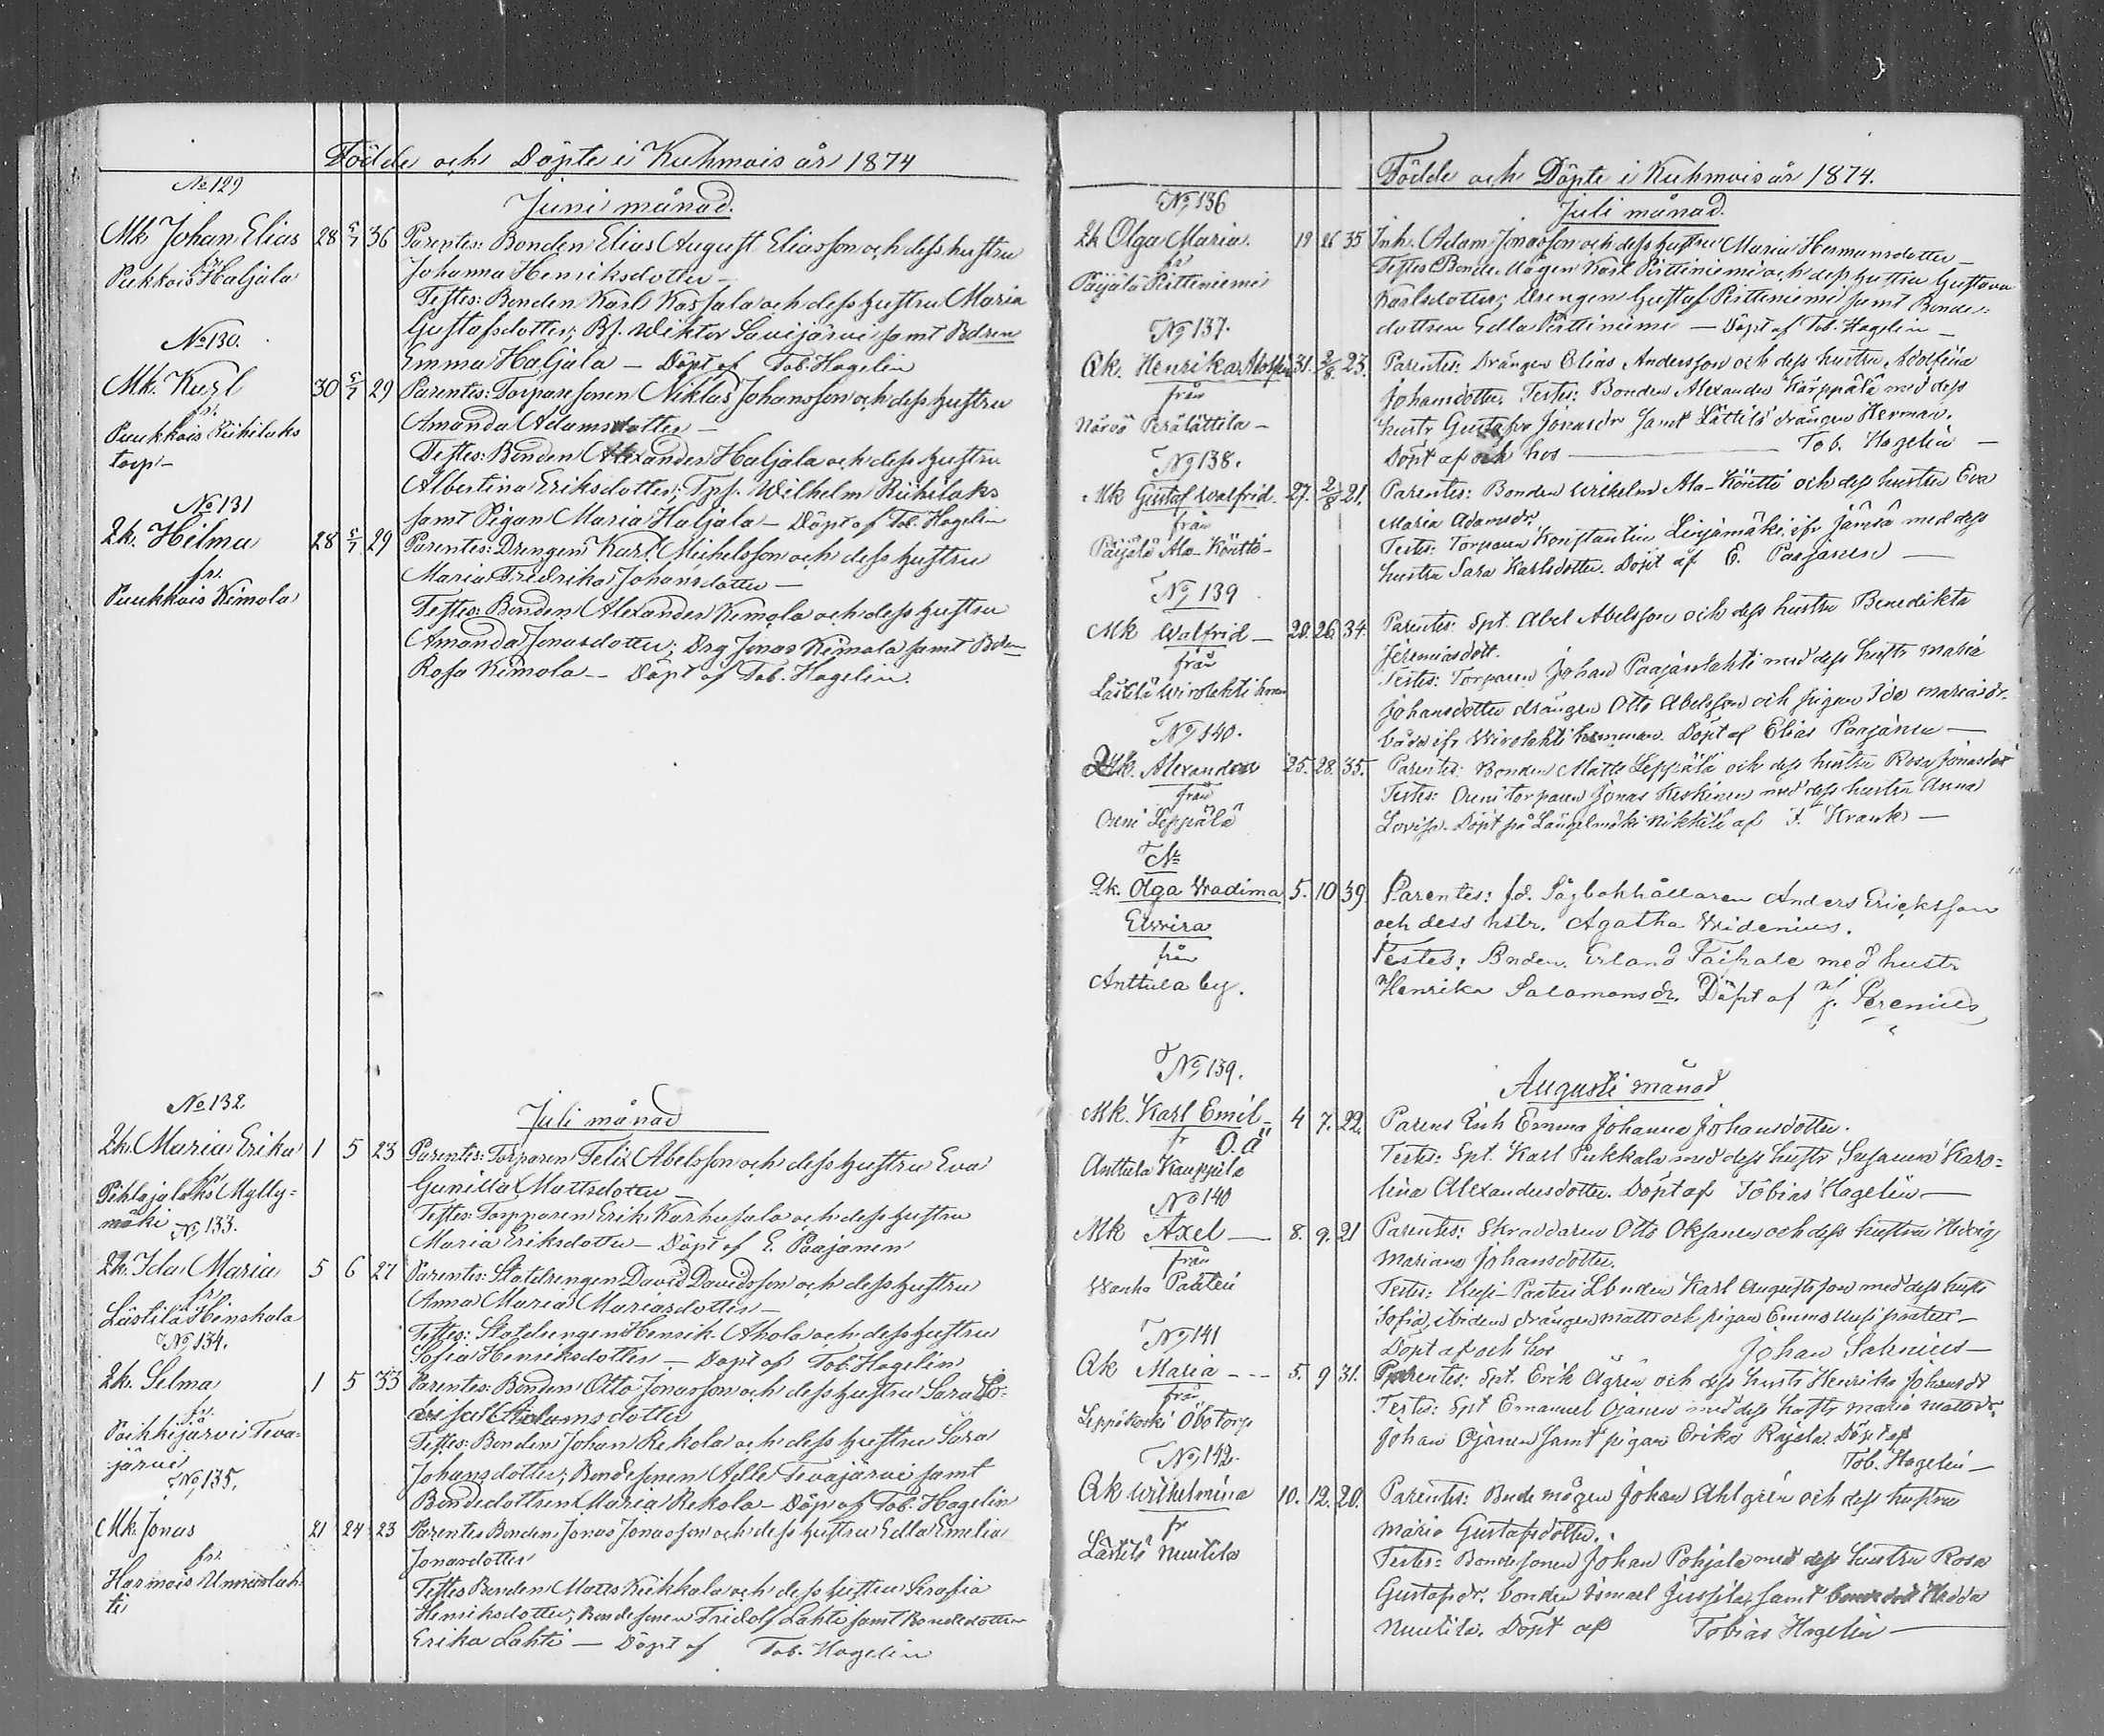 Födde och Döpte i Kuhmois år 1874
No 129
Juni månad.
Mk. Johan Elias 28 5/7 36 Parentes: Bonden Elias August Eliasson och dess hustru
fr
Pukkois Haljala Johanna Henriksdotter —
Testes: Bonden Karl Kassala och dess hustru Maria
Gustafsdotter; Bs. Wiktor Savijärvi samt Bdrn
No 130.
Emma Haljala — Döpt af Tob. Hagelin
Mk. Karl 30 5/7 29 Parentes: Torparesonen Niklas Johansson och dess hustru
fr.
Puukkois Riihilaks Amanda Adamsdotter —
torp — Testes: Bonden Alexander Haljala och dess hustru
Albertina Eriksdotter; Tps. Wilhelm Riihilaks
No 131
samt Pigan Maria Haljala — Döpt af Tob. Hagelin
Qk. Hilma 28 5/7 29 Parentes: Drengen Karl Michelsson och dess hustru
fr.
Puukkois Kimola Maria Fredrika Johansdotter —
Testes: Bonden Alexander Kimola och dess hustru
Amanda Jonasdotter; Drg Jonas Kimola samt Bdrn
Rosa Kimola — Döpt af Tob. Hagelin.
No 132
Juli månad
Qk. Maria Erika 1 5 23 Parentes: Torparen Felix Abelsson och dess hustru Eva
fr
Pihlajalaks Mylly= Gunilla Mattsdotter —
mäki Testes: Torpparen Erik Karhusala och dess hustru
No 133.
Maria Eriksdotter — Döpt af E. Paajanen
Qk. Ida Maria 5 6 27 Parentes: Statdrengen David Davidsson och dess hustru
fr.
Lästilä Hinskala Anna Maria Mariasdotter —
Testes: Statdrengen Henrik Ahola och dess hustru
No 134.
Sofia Henriksdotter — Döpt af Tob. Hagelin
Qk. Selma 1 5 33 Parentes: Bonden Otto Jonasson och dess hustru Sara Lo=
fr.
visa Adamsdotter
Päikkijärvi Teva= Testes: Bonden Johan Rekola och dess hustru Sara
järvi Johansdotter; Bondesonen Adle Tevajärvi samt
No 135.
Bondedottren Maria Rekola — Döp af Tob. Hagelin
Mk. Jonas 21 24 23 Parentes Bonden Jonas Jonasson och dess hustru Edla Emelia
fr.
Jonasdotter
Harmois Unnaslah= Testes Bonden Matts Kiikkala och dess hustru Serafia
ti Henriksdotter; Bondesonen Fridolf Lahti samt Bondedottern
Erika Lahti — Döpt af Tob. Hagelin
Födde och Döpte i Kuhmois år 1874.
No 136
Juli månad.
Qk Olga Maria. 19 26 35 Inh. Adam Jonasson och dess hustru Maria Hermansdotter —
fr
Päijälä Pirttiniemi Testes Bonde Mågen Karl Pirttiniemi och dess hustru Gustava
Karlsdotter; Drengen Gustaf Pirttiniemi samt Bonde=
No 137.
dottren Edla Pirttiniemi — Döpt af Tob. Hagelin —
Qk. Henrika Adolfin 31. 2/8. 23. Parentes: Drängen Elias Andersson och dess hustru Adolfina
från
Johansdotter. Testes: Bonden Alexander Karppälä med dess
Perälättilä — hustr Gustafva Jonasdr samt Lättilä drängen Herman.
No 138.
Döpt af och hos — Tob. Hagelin —
Mk Gustaf Walfrid. 27. 2/8 21. Parentes: Bonden Wilhelm Ala-Köntti och dess hustru Eva
från
Maria Adamsdr.
Päijälä Ala-Köntti — Testes: Torparen Konstantin Linjamäki ifr Jämsä med dess
hustru Sara Karlsdotter. Döpt af E. Paajanen —
No 139
Mk Walfrid — 20. 26. 34. Parentes: Spt. Abel Abelsson och dess hustru Benedikta
från
Jeremiasdott.
Lästilä Wirolahti hem Testes: Torparen Johan Paajanlahti med dess hustr Maria
Johansdotter drängen Otto Abelsson och pigan Ida Mariasdr.
No 140.
båda ifr Wirolahti hemman. Döpt af Elias Paajanen —
Qk. Alexandra 25. 28. 35. Parentes: Bonden Matts Leppälä och dess hustru Rosa Jonasdr
från
Testes: Ouni torparen Jonas Keskinen med dess hustru Anna
Ouni Leppälä Lovisa. Döpt på Längelmäki Nikkilä af F. Krank —
No
Qk. Olga Wadima 5. 10 39 Parentes: fd. Sågbokhållaren Anders Ericksson
Elwira och dess hstr. Agatha Widenius.
från Testes: Bnden. Erland Taipale med hustr
Anttula by. Henrika Salomonsdr. Döpt af J. Perenius
No 139.
Augusti månad
Mk. Karl Emil — 4 7. 22. Parens Inh Emma Johanna Johansdotter.
fr O.ä
Anttula Kauppila Testes: Spt. Karl Pukkala med dess hustr Susanna Karo=
No 140
lina Alexandersdotter. Döpt af Tobias Hagelin —
Mk Axel — 8. 9. 21 Parentes: Skräddaren Otto Oksanen och dess hustru Hedvig
från
Mariana Johansdotter.
Wanha Paateri Testes: Uusi-Paateri Lbonden Karl Augustsson med dess hustr
Sofia, drängen Matts och pigan Emma Uusi paateri —
No 141
Döpt af och hos Johan Salenius —
Qk Maria — 5. 9 31. Parentes: Spt. Erik Ågrén och dess hustr Henrika Johansdr
från
Leppäkoski Öbo torp Testes: Spt Emanuel Ojanen med dess hustr Maria Mattsdr.
Johan Ojanen samt pigan Erika Rajala. Döpt af
No 142.
Tob. Hagelin —
Qk Wilhelmina 10. 12. 20. Parentes: Bnde mågen Johan Ahlgrén och dess hustru
fr
Maria Gustafsdotter.
Lästilä Nuutila Testes: Bondesonen Johan Pohjala med dess hustru Rosa
Gustafsdr. bonden Ismael Jussila, samt bonddott Hedda
Nuutila. Döpt af Tobias Hagelin —